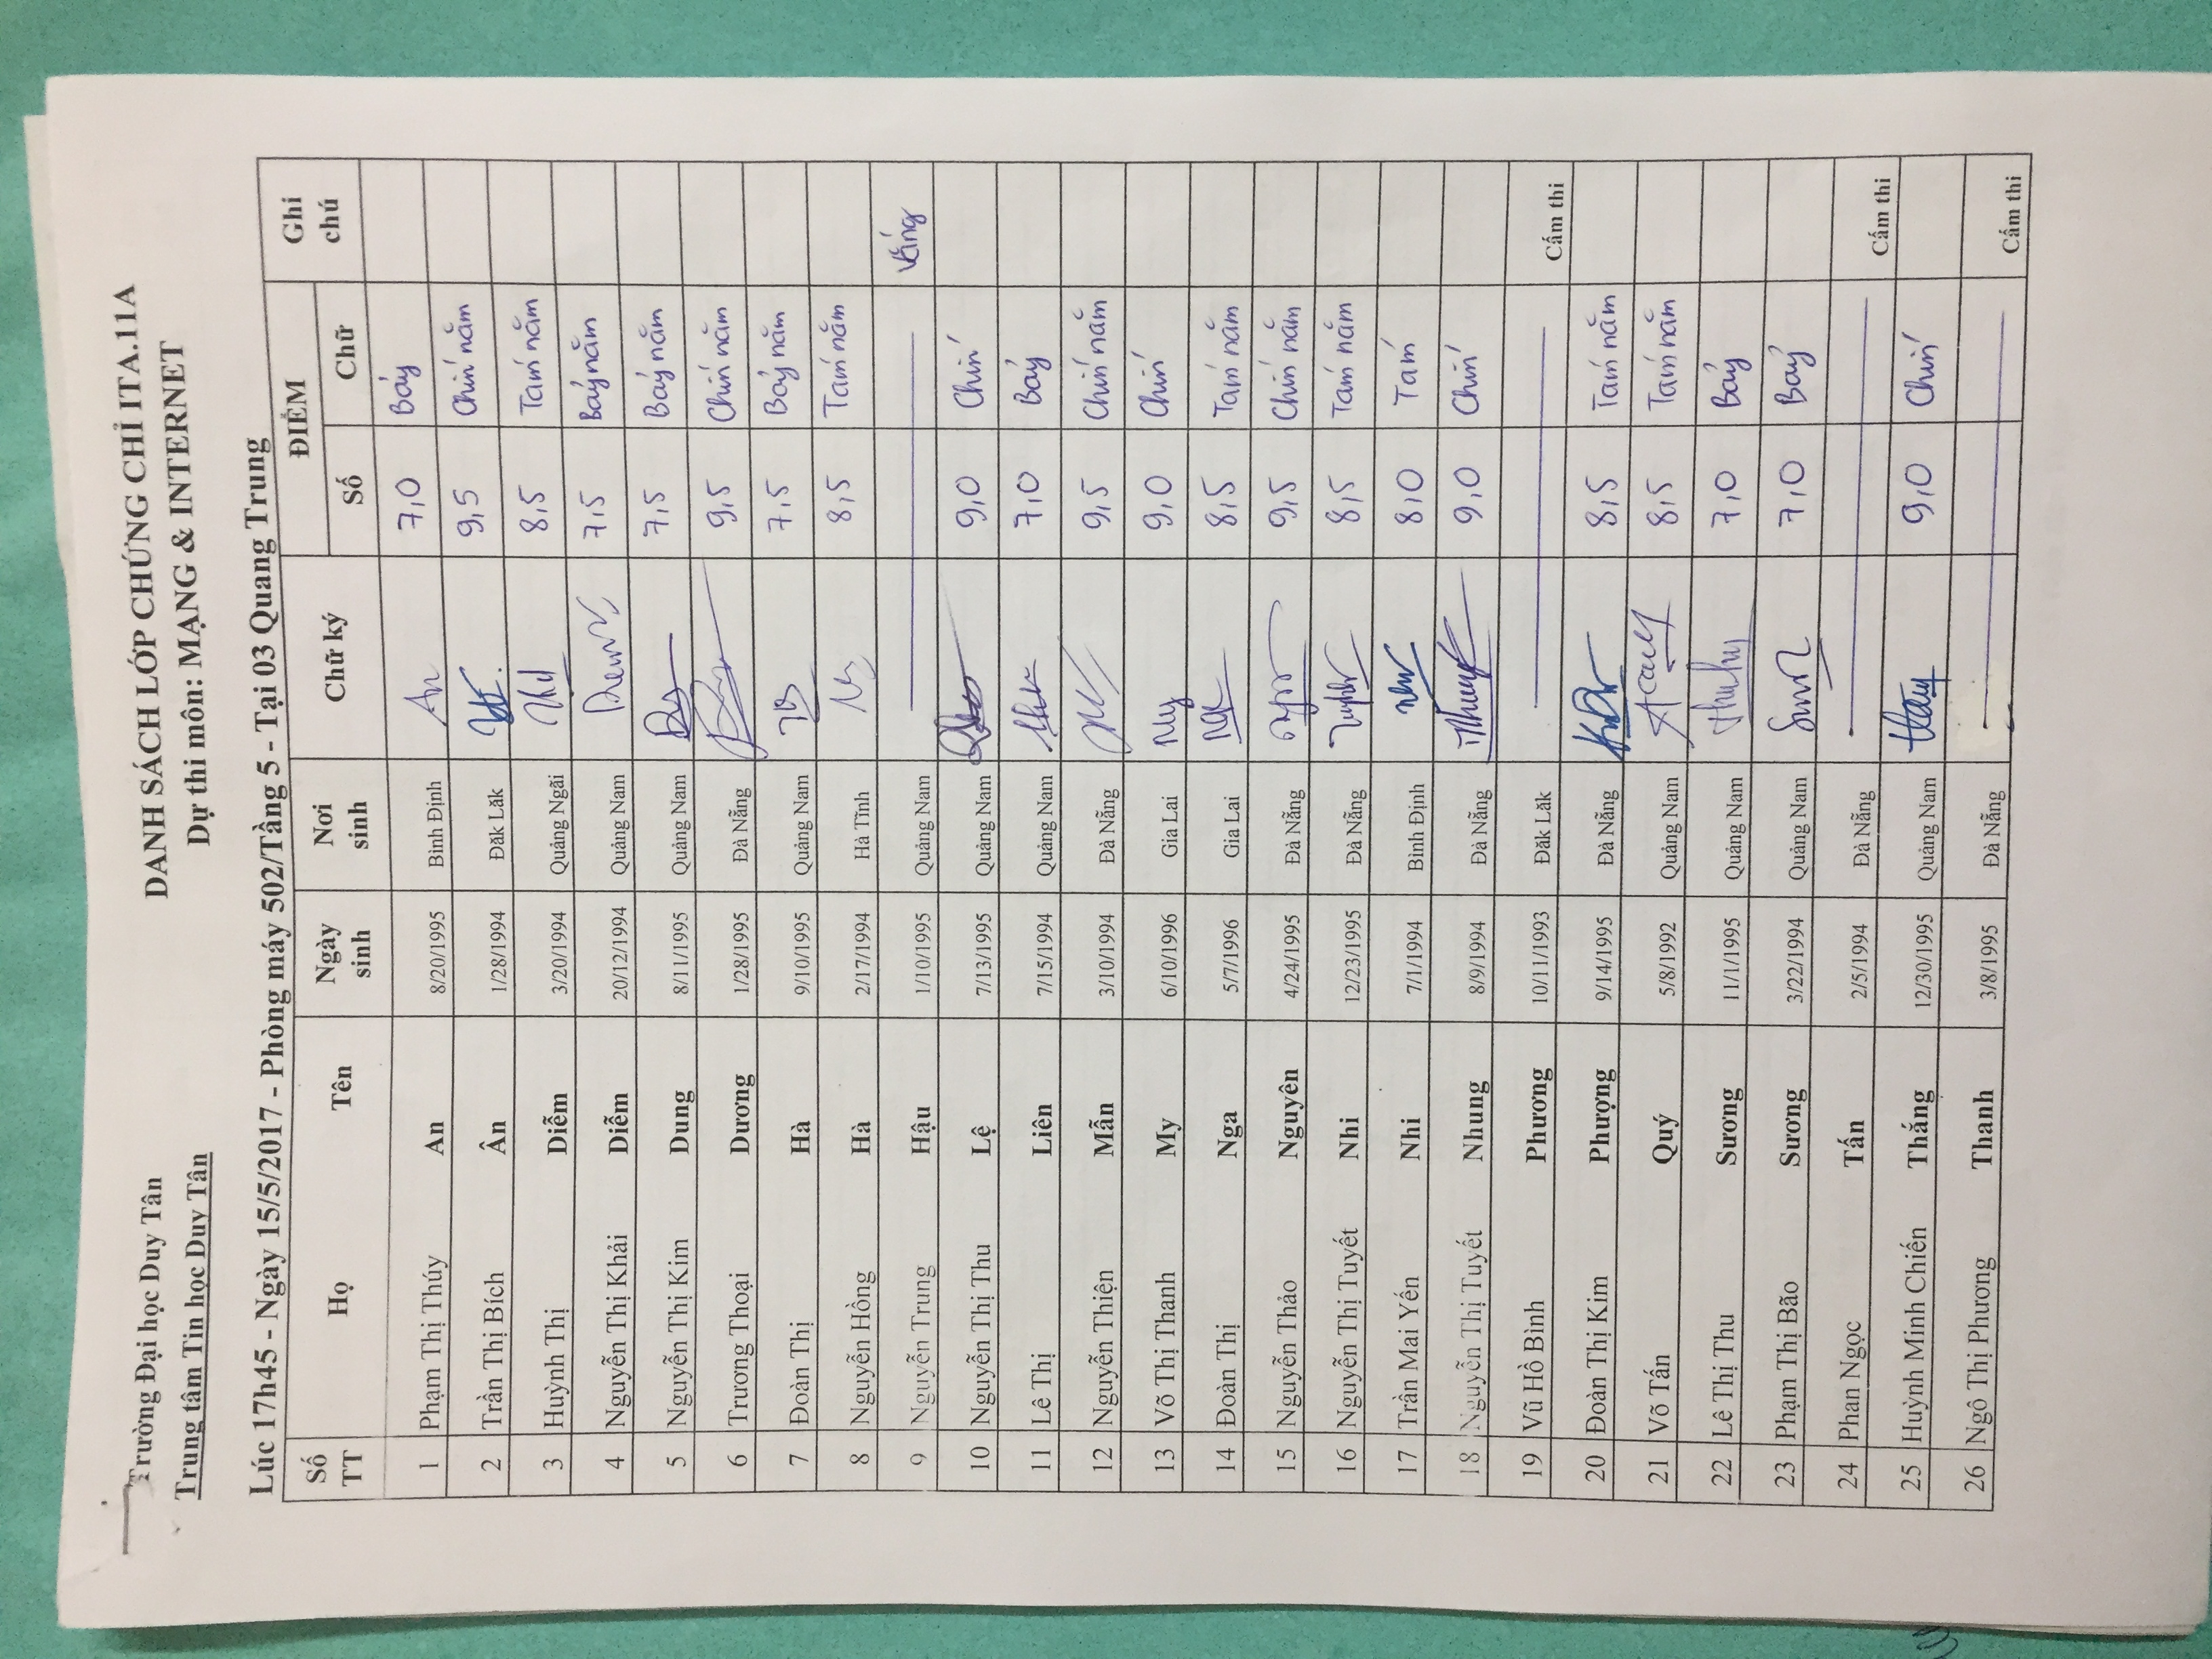 Trường Đại học Duy Tân
Trung tâm Tin học Duy Tân
DANH SÁCH LỚP CHỨNG CHỈ ITA.11A
Dự thi môn: MẠNG & INTERNET
Lúc 17h45 - Ngày 15/5/2017 - Phòng máy 502/Tầng 5 - Tại 03 Quang Trung
Số TT Họ Tên Ngày sinh Nơi sinh Chữ ký ĐIỂM Ghi chú
Số Chữ
1 Phạm Thị Thúy An 8/20/1995 Bình Định An 7,0 Bảy
2 Trần Thị Bích Ân 1/28/1994 Đăk Lăk 9,5 Chín năm
3 Huỳnh Thị Diễm 3/20/1994 Quảng Ngãi 8,5 Tám năm
4 Nguyễn Thị Khải Diễm 20/12/1994 Quảng Nam 7,5 Bảy năm
5 Nguyễn Thị Kim Dung 8/11/1995 Quảng Nam 7,5 Bảy năm
6 Trương Thoại Dương 1/28/1995 Đà Nẵng 9,5 Chín năm
7 Đoàn Thị Hà 9/10/1995 Quảng Nam 7,5 Bảy năm
8 Nguyễn Hồng Hà 2/17/1994 Hà Tĩnh 8,5 Tám năm
9 Nguyễn Trung Hậu 1/10/1995 Quảng Nam Vắng
10 Nguyễn Thị Thu Lệ 7/13/1995 Quảng Nam 9,0 Chín
11 Lê Thị Liên 7/15/1994 Quảng Nam 7,0 Bảy
12 Nguyễn Thiện Mẫn 3/10/1994 Đà Nẵng 9,5 Chín năm
13 Võ Thị Thanh My 6/10/1996 Gia Lai My 9,0 Chín
14 Đoàn Thị Nga 5/7/1996 Gia Lai 8,5 Tám năm
15 Nguyễn Thảo Nguyên 4/24/1995 Đà Nẵng 9,5 Chín năm
16 Nguyễn Thị Tuyết Nhi 12/23/1995 Đà Nẵng 8,5 Tám năm
17 Trần Mai Yến Nhi 7/1/1994 Bình Định 8,0 Tám
18 Nguyễn Thị Tuyết Nhung 8/9/1994 Đà Nẵng 9,0 Chín
19 Vũ Hồ Bình Phương 10/11/1993 Đăk Lăk Cấm thi
20 Đoàn Thị Kim Phượng 9/14/1995 Đà Nẵng 8,5 Tám năm
21 Võ Tấn Quý 5/8/1992 Quảng Nam 8,5 Tám năm
22 Lê Thị Thu Sương 11/1/1995 Quảng Nam 7,0 Bảy
23 Phạm Thị Bão Sương 3/22/1994 Quảng Nam 7,0 Bảy
24 Phan Ngọc Tấn 2/5/1994 Đà Nẵng Cấm thi
25 Huỳnh Minh Chiến Thắng 12/30/1995 Quảng Nam 9,0 Chín
26 Ngô Thị Phương Thanh 3/8/1995 Đà Nẵng Cấm thi